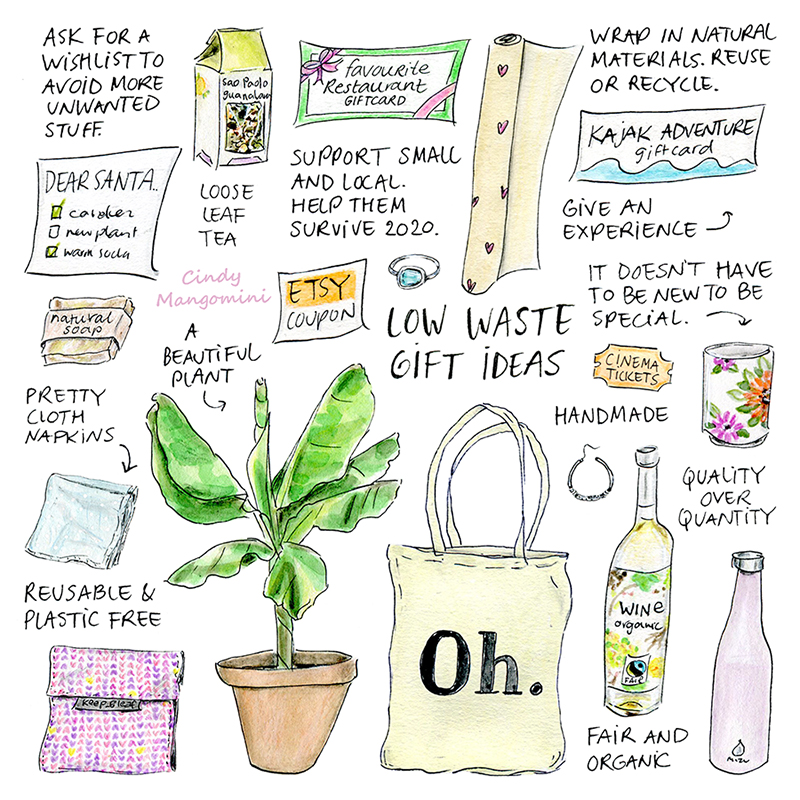 ASK FOR A
WISHLIST TO
AVOID MORE
UNWANTED
STUFF.
DEAR SANTA..
new plant
warm socks
LOOSE
LEAF
TEA
favourite
Restaurant
GIFTCARD
SUPPORT SMALL
AND LOCAL.
HELP THEM
SURVIVE 2020.
WRAP IN NATURAL
MATERIALS. REUSE
OR RECYCLE.
KAJAK ADVENTURE
giftcard
GIVE AN
EXPERIENCE
IT DOESN'T HAVE
TO BE NEW TO BE
SPECIAL.
Cindy
Mangomini
ETSY
COUPON
LOW WASTE
GIFT IDEAS
natural
soap
A
BEAUTIFUL
PLANT
CINEMA
TICKETS
PRETTY
CLOTH
NAPKINS
HANDMADE
QUALITY
OVER
QUANTITY
REUSABLE &
PLASTIC FREE
Oh.
WINE
organic
FAIR
FAIR AND
ORGANIC
MIZU